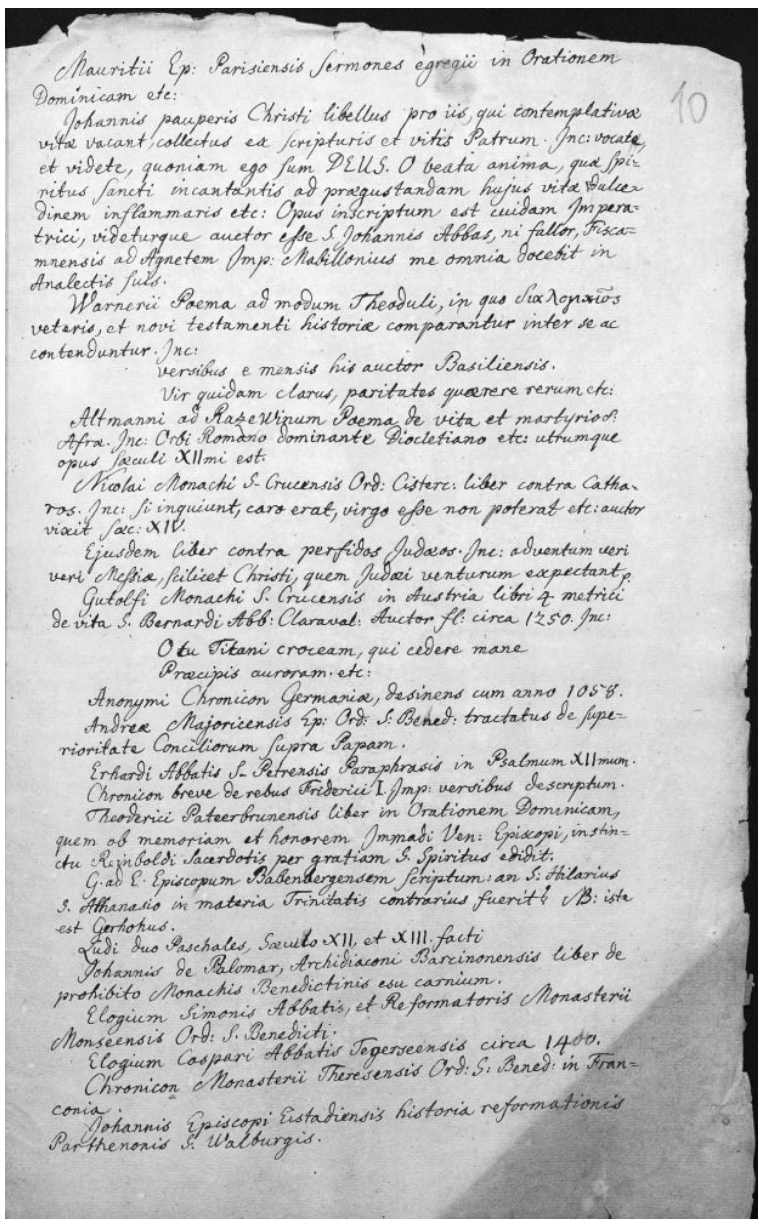 Mauritii Ep: Parisiensis Sermones egregii in Orationem
Dominicam etc:
10
Johannis pauperis Christi libellus pro iis, qui contemplativæ
vitæ vacant, collectus ex scripturis et vitis Patrum. Inc: vocate,
et videte, quoniam ego sum DEUS. O beata anima, quæ Spi=
ritus sancti incantantis ad prægustandam hujus vitæ dulce=
dinem inflammaris etc: Opus inscriptum est cuidam Impera=
trici, videturque auctor esse S. Johannis Abbas, ni fallor, Fisca=
mnensis ad Agnetem Imp: Mabillonius me omnia docebit in
Analectis suis.
Warnerii Poema ad modum Theoduli, in quo
veteris, et novi testamenti historiæ comparantur inter se ac
contenduntur. Inc:
versibus e mensis his auctor Basiliensis.
Vir quidam clarus, paritates quærere rerum etc:
Altmanni ad Razewinum Poema de vita et martyrio S.
Afræ. Inc: Orbi Romano dominante Diocletiano etc: utrumque
opus sæculi XIImi est.
Nicolai Monachi S. Crucensis Ord: Cisterc: liber contra Catha=
ros. Inc: si inquiunt, caro erat, virgo esse non poterat etc: auctor
vixit sæc: XIV.
Ejusdem liber contra perfidos Judæos. Inc: adventum veri
veri Messiæ, scilicet Christi, quem Judæi venturum expectant
Gutolfi Monachi S. Crucensis in Austria libri 4 metrici
de vita S. Bernardi Abb: Claraval: Auctor fl: circa 1250. Inc:
O tu Titani croceam, qui cedere mane
Præcipis auroram. etc:
Anonymi Chronicon Germaniæ, desinens cum anno 1058.
Andreæ Majoricensis Ep: Ord: S: Bened: tractatus de supe=
rioritate Conciliorum supra Papam.
Erhardi Abbatis S. Petrensis Paraphrasis in Psalmum XIImum.
Chronicon breve de rebus Friderici I. Imp: versibus descriptum.
Theoderici Pateerbrunensis liber in Orationem Dominicam,
quem ob memoriam et honorem Immadi Ven: Episcopi, instin=
ctu Reinboldi Sacerdotis per gratiam S. Spiritus edidit.
G. ad E. Episcopum Babenbergensem scriptum: an S: Hilarius
S. Athanasio in materia Trinitatis contrarius fuerit? NB: iste
est Gerhohus.
Ludi duo Paschales, Sæculo XII, et XIII. facti
Johannis de Palomar, Archidiaconi Barcinonensis liber de
prohibito Monachis Benedictinis esu carnium.
Elogium Simonis Abbatis, et Reformatoris Monasterii
Monseensis Ord: S. Benedicti.
Elogium Caspari Abbatis Tegerseensis circa 1400.
Chronicon Monasterii Theresensis Ord: S: Bened: in Fran=
conia.
Johannis Episcopi Eistadiensis historia reformationis
Parthenonis S. Walburgis.